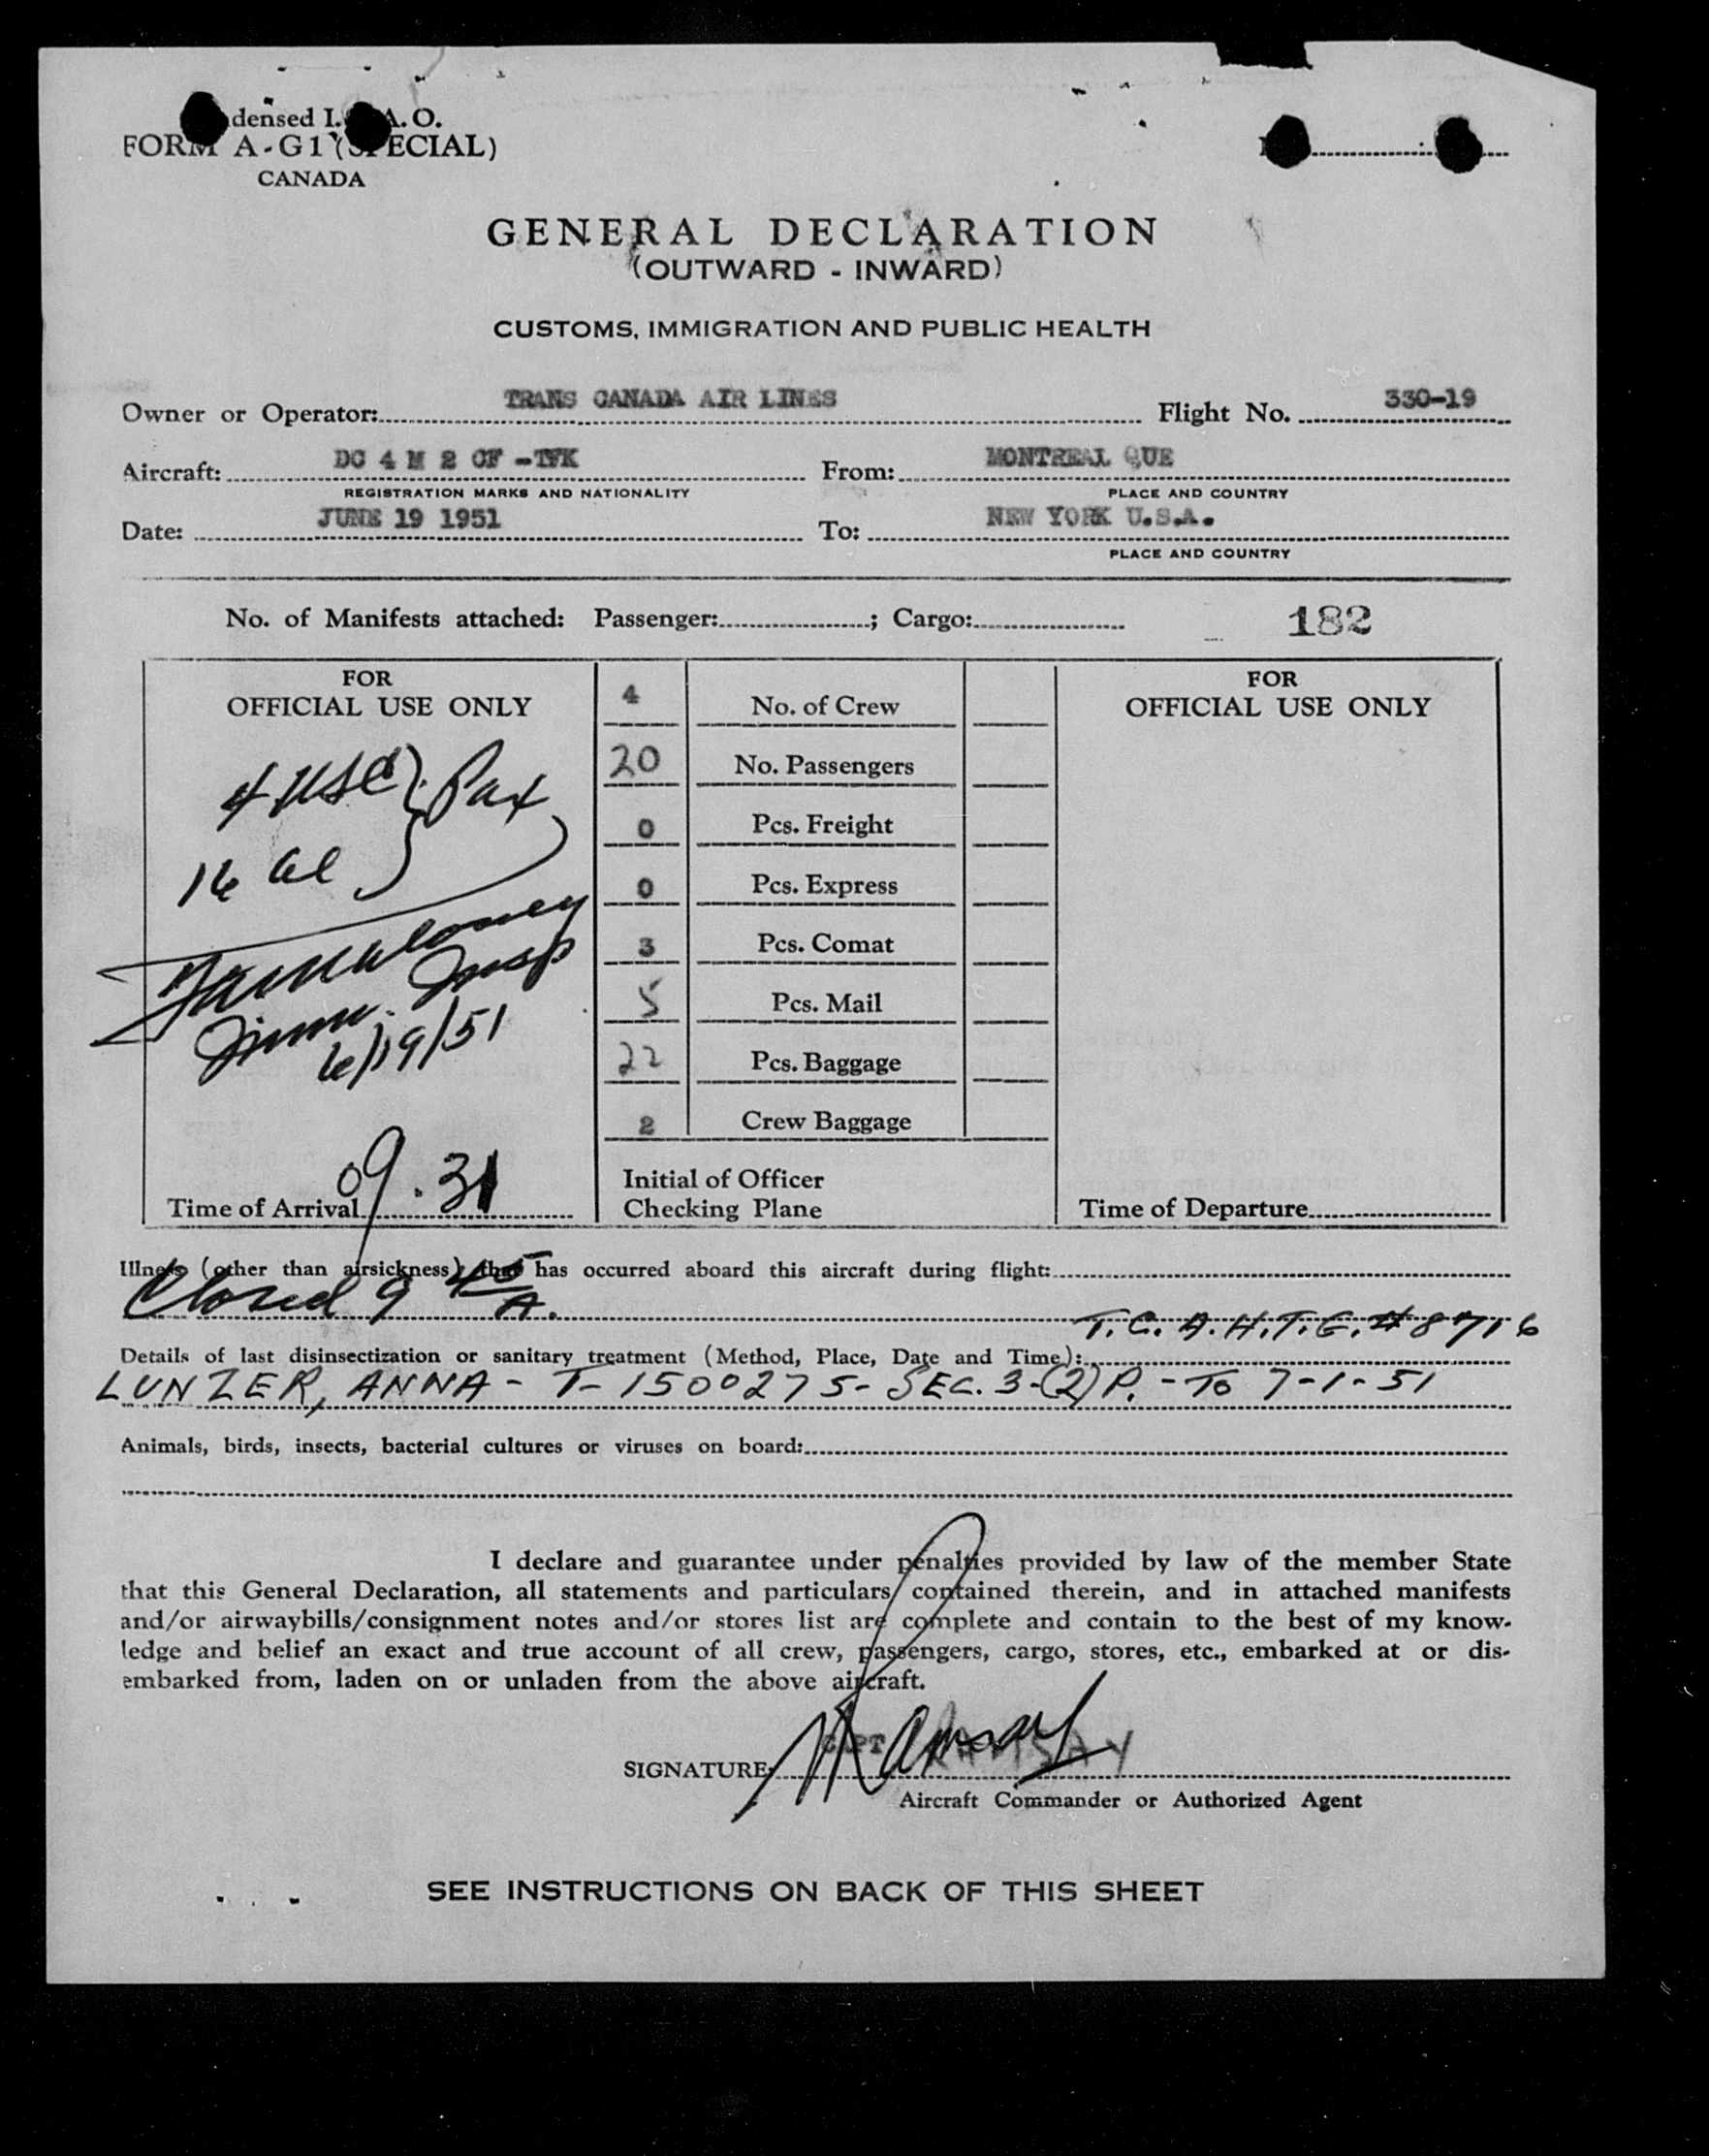 densed I. A. O.
FORM A-G1 (SPECIAL)
CANADA
GENERAL DECLARATION
(OUTWARD - INWARD)
CUSTOMS, IMMIGRATION AND PUBLIC HEALTH
Owner or Operator: TRANS CANADA AIR LINES Flight No. 330-19
Aircraft: DC 4 M 2 CF -TFK From: MONTREAL QUE
REGISTRATION MARKS AND NATIONALITY PLACE AND COUNTRY
Date: JUNE 19 1951 To: NEW YORK U.S.A.
PLACE AND COUNTRY
No. of Manifests attached: Passenger: ; Cargo: 182
FOR
OFFICIAL USE ONLY
4 USC } Pax
16 al
Imm. Insp
6/19/51
Time of Arrival 09.31
4 No. of Crew
20 No. Passengers
0 Pcs. Freight
0 Pcs. Express
3 Pcs. Comat
5 Pcs. Mail
22 Pcs. Baggage
2 Crew Baggage
Initial of Officer
Checking Plane
FOR
OFFICIAL USE ONLY
Time of Departure
Illness (other than airsickness) that has occurred aboard this aircraft during flight:
Closed 9 45 A.
T.C.A.H.T.G. # 8716
Details of last disinsectization or sanitary treatment (Method, Place, Date and Time):
LUNZER, ANNA - T-1500275- SEC. 3-(2) P. - TO 7-1-51
Animals, birds, insects, bacterial cultures or viruses on board:
I declare and guarantee under penalties provided by law of the member State
that this General Declaration, all statements and particulars contained therein, and in attached manifests
and/or airwaybills/consignment notes and/or stores list are complete and contain to the best of my know-
ledge and belief an exact and true account of all crew, passengers, cargo, stores, etc., embarked at or dis-
embarked from, laden on or unladen from the above aircraft.
SIGNATURE: CAPT RAMSAY
Aircraft Commander or Authorized Agent
SEE INSTRUCTIONS ON BACK OF THIS SHEET